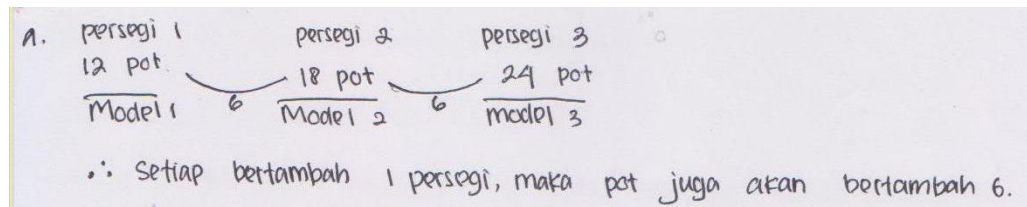 a. persegi 1 persegi 2 persegi 3
12 pot 18 pot 24 pot
6 6
Model 1 Model 2 model 3
∴ Setiap bertambah 1 persegi, maka pot juga akan bertambah 6.